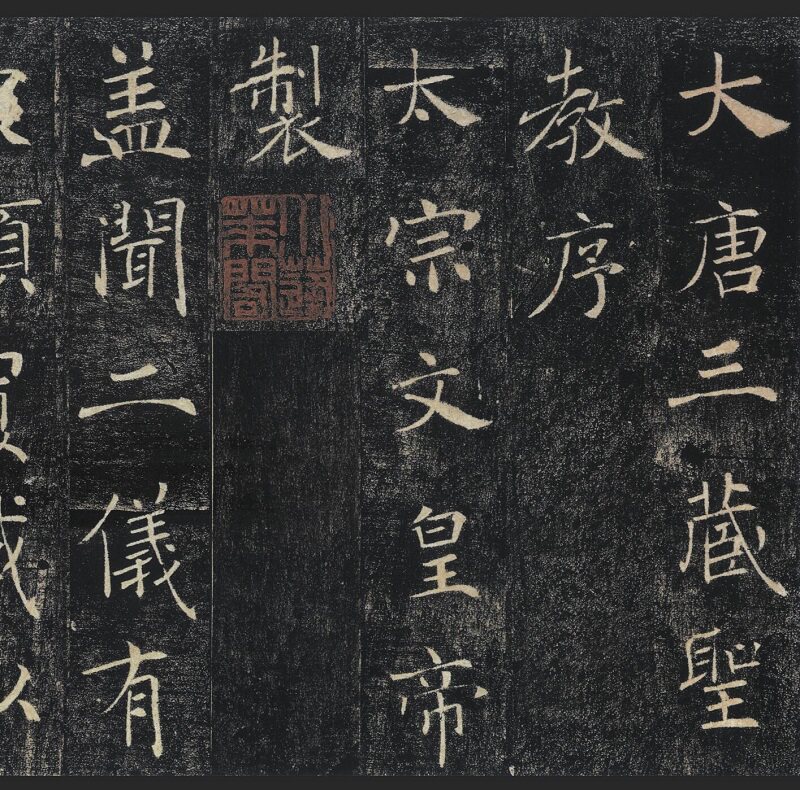 大唐三藏聖
教序
太宗文皇帝
製
盖聞二儀有